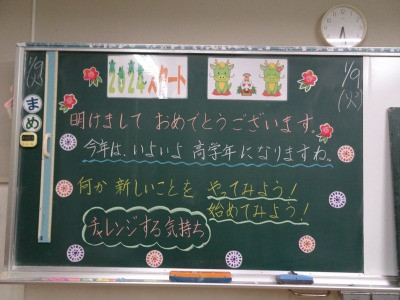 2024スタート
1/9
(火)
1/9
(火)
まめ
明けまして おめでとうございます。
今年は、いよいよ 高学年になりますね。
何か 新しいことを やってみよう!
始めてみよう!
チャレンジする気持ち